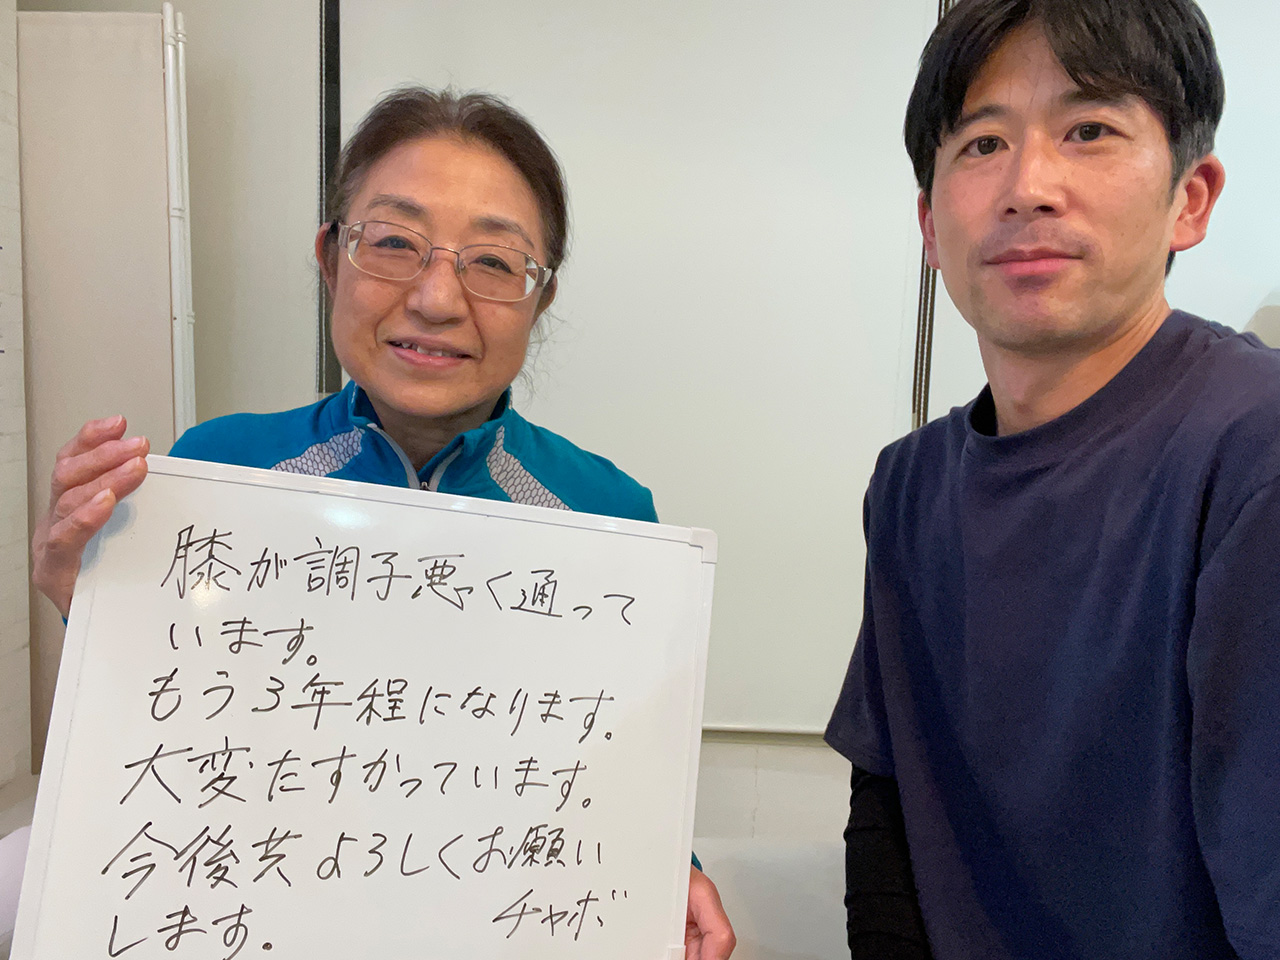 膝が調子悪く通って
います。
もう3年程になります。
大変たすかっています。
今後共よろしくお願い
します。
チャボ